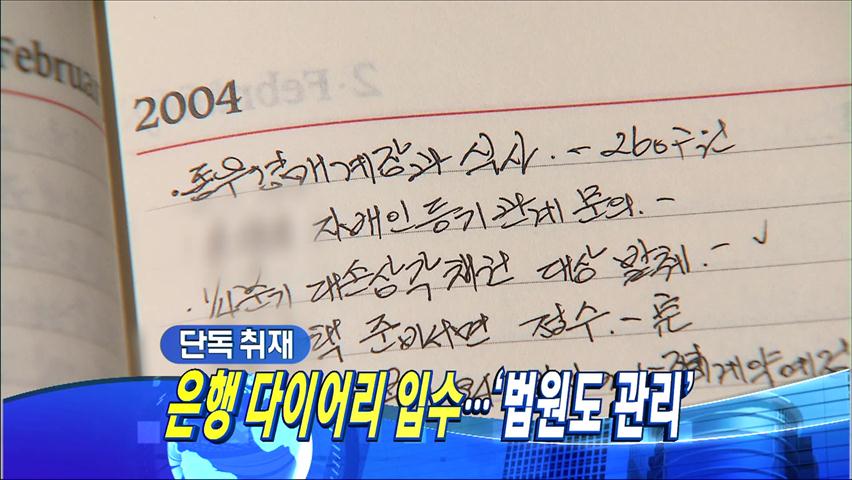 Februar
2004
.중부경매계장과 식사. - 260구인
자매인등기관계 문의. -
. 1/4분기 대손상각채권 대상 발췌. - ✓
준비서면 접수. - 完
계약
단독 취재
은행 다이어리 입수...'법원도 관리'